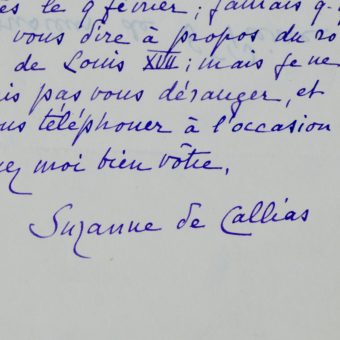 le 9 février ; j'aurais q.
vous dire à propos du ro
de Louis XVII ; mais je ne
is pas vous déranger, et
ous téléphoner à l'occasion
ez moi bien vôtre,
Suzanne de Callias